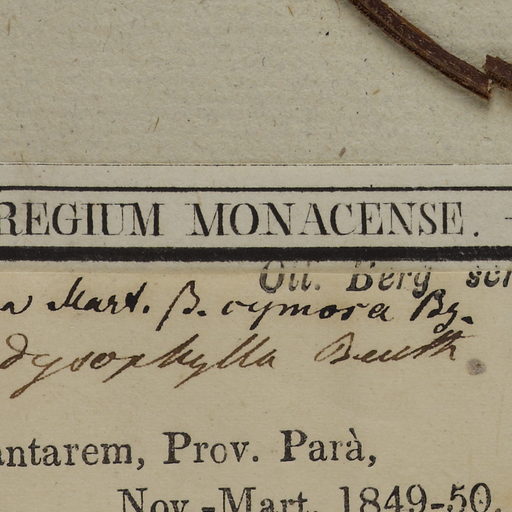 REGIUM MONACENSE.
Ott. Berg scr
a Mart. β. cymosa Bg.
dysophylla Benth
antarem, Prov. Parà,
Nov.-Mart. 1849-50.